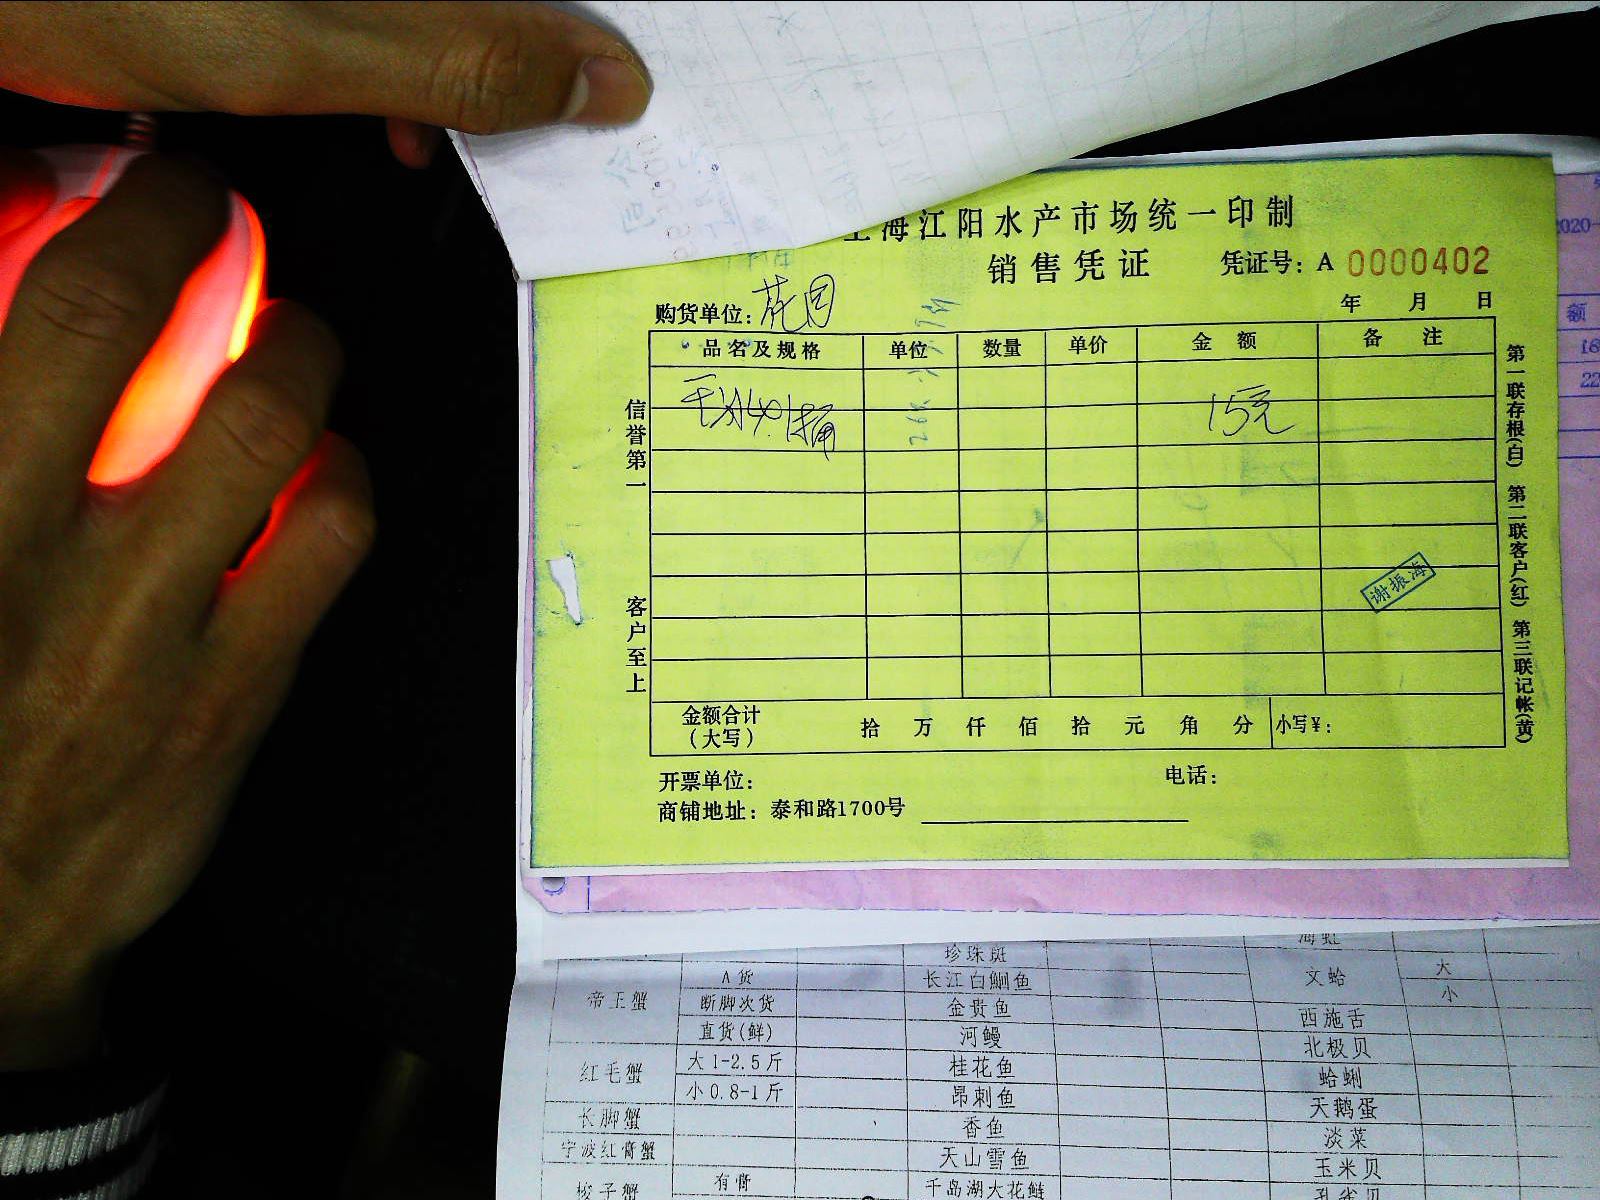 海江阳水产市场统一印制
销售凭证 凭证号：A 0000402
购货单位：花园 年 月 日
品名及规格 单位 数量 单价 金额 备注
15元
信誉第一
客户至上
谢振海
第一联存根(白) 第二联客户(红) 第三联记帐(黄)
金额合计 拾 万 仟 佰 拾 元 角 分 小写¥：
（大写）
开票单位： 电话：
商铺地址：泰和路1700号
2020-
额
16
22
珍珠斑 海虹
帝王蟹 A货 长江白鮰鱼 文蛤 大
断脚次货 金贵鱼 小
直货(鲜) 河鳗 西施舌
红毛蟹 大1-2.5斤 桂花鱼 北极贝
小0.8-1斤 昂刺鱼 蛤蜊
长脚蟹 香鱼 天鹅蛋
宁波红膏蟹 天山雪鱼 淡菜
梭子蟹 有膏 千岛湖大花鲢 玉米贝
孔雀贝